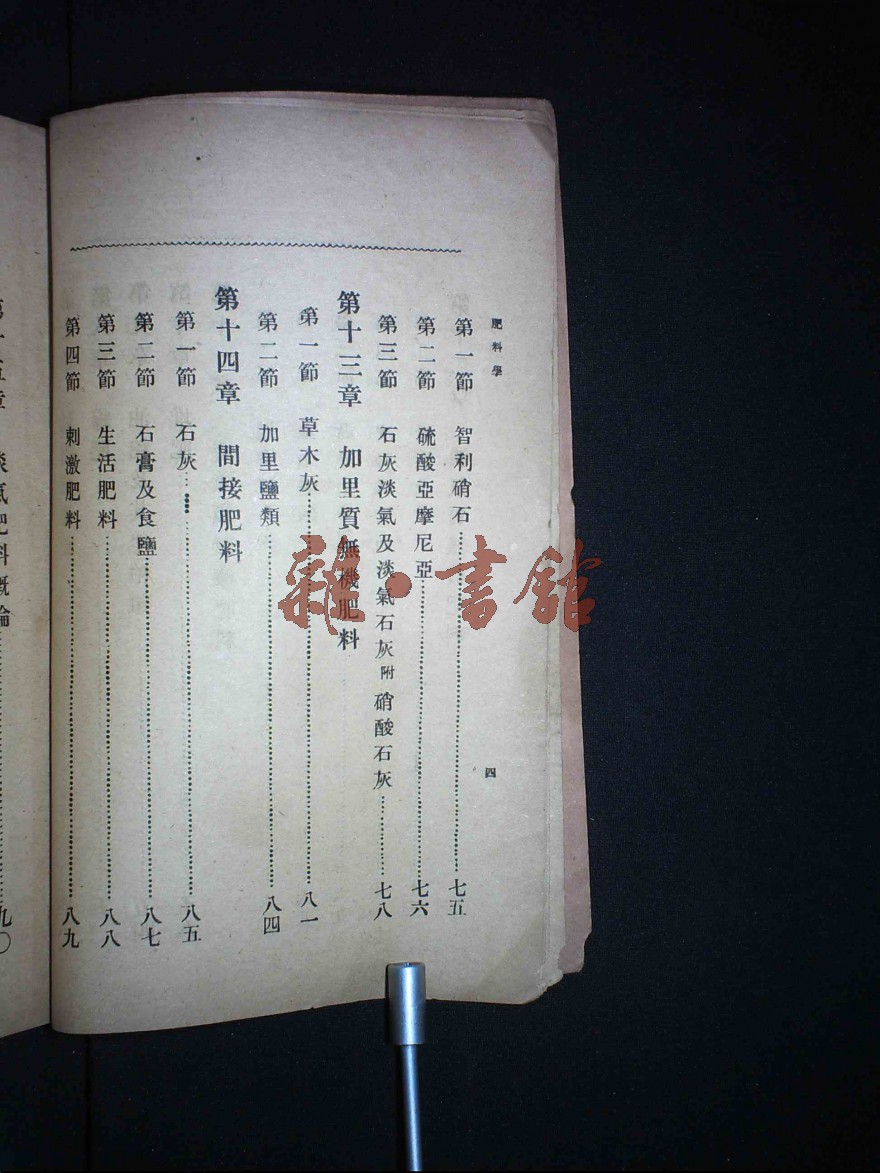 肥料學
四
第一節 智利硝石 七五
第二節 硫酸亞摩尼亞 七六
第三節 石灰淡氣及淡氣石灰附硝酸石灰 七八
第十三章 加里質無機肥料
第一節 草木灰 八一
第二節 加里鹽類 八四
第十四章 間接肥料
第一節 石灰 八五
第二節 石膏及食鹽 八七
第三節 生活肥料 八八
第四節 刺激肥料 八九
淡氣肥料概論 九〇
雜·書館